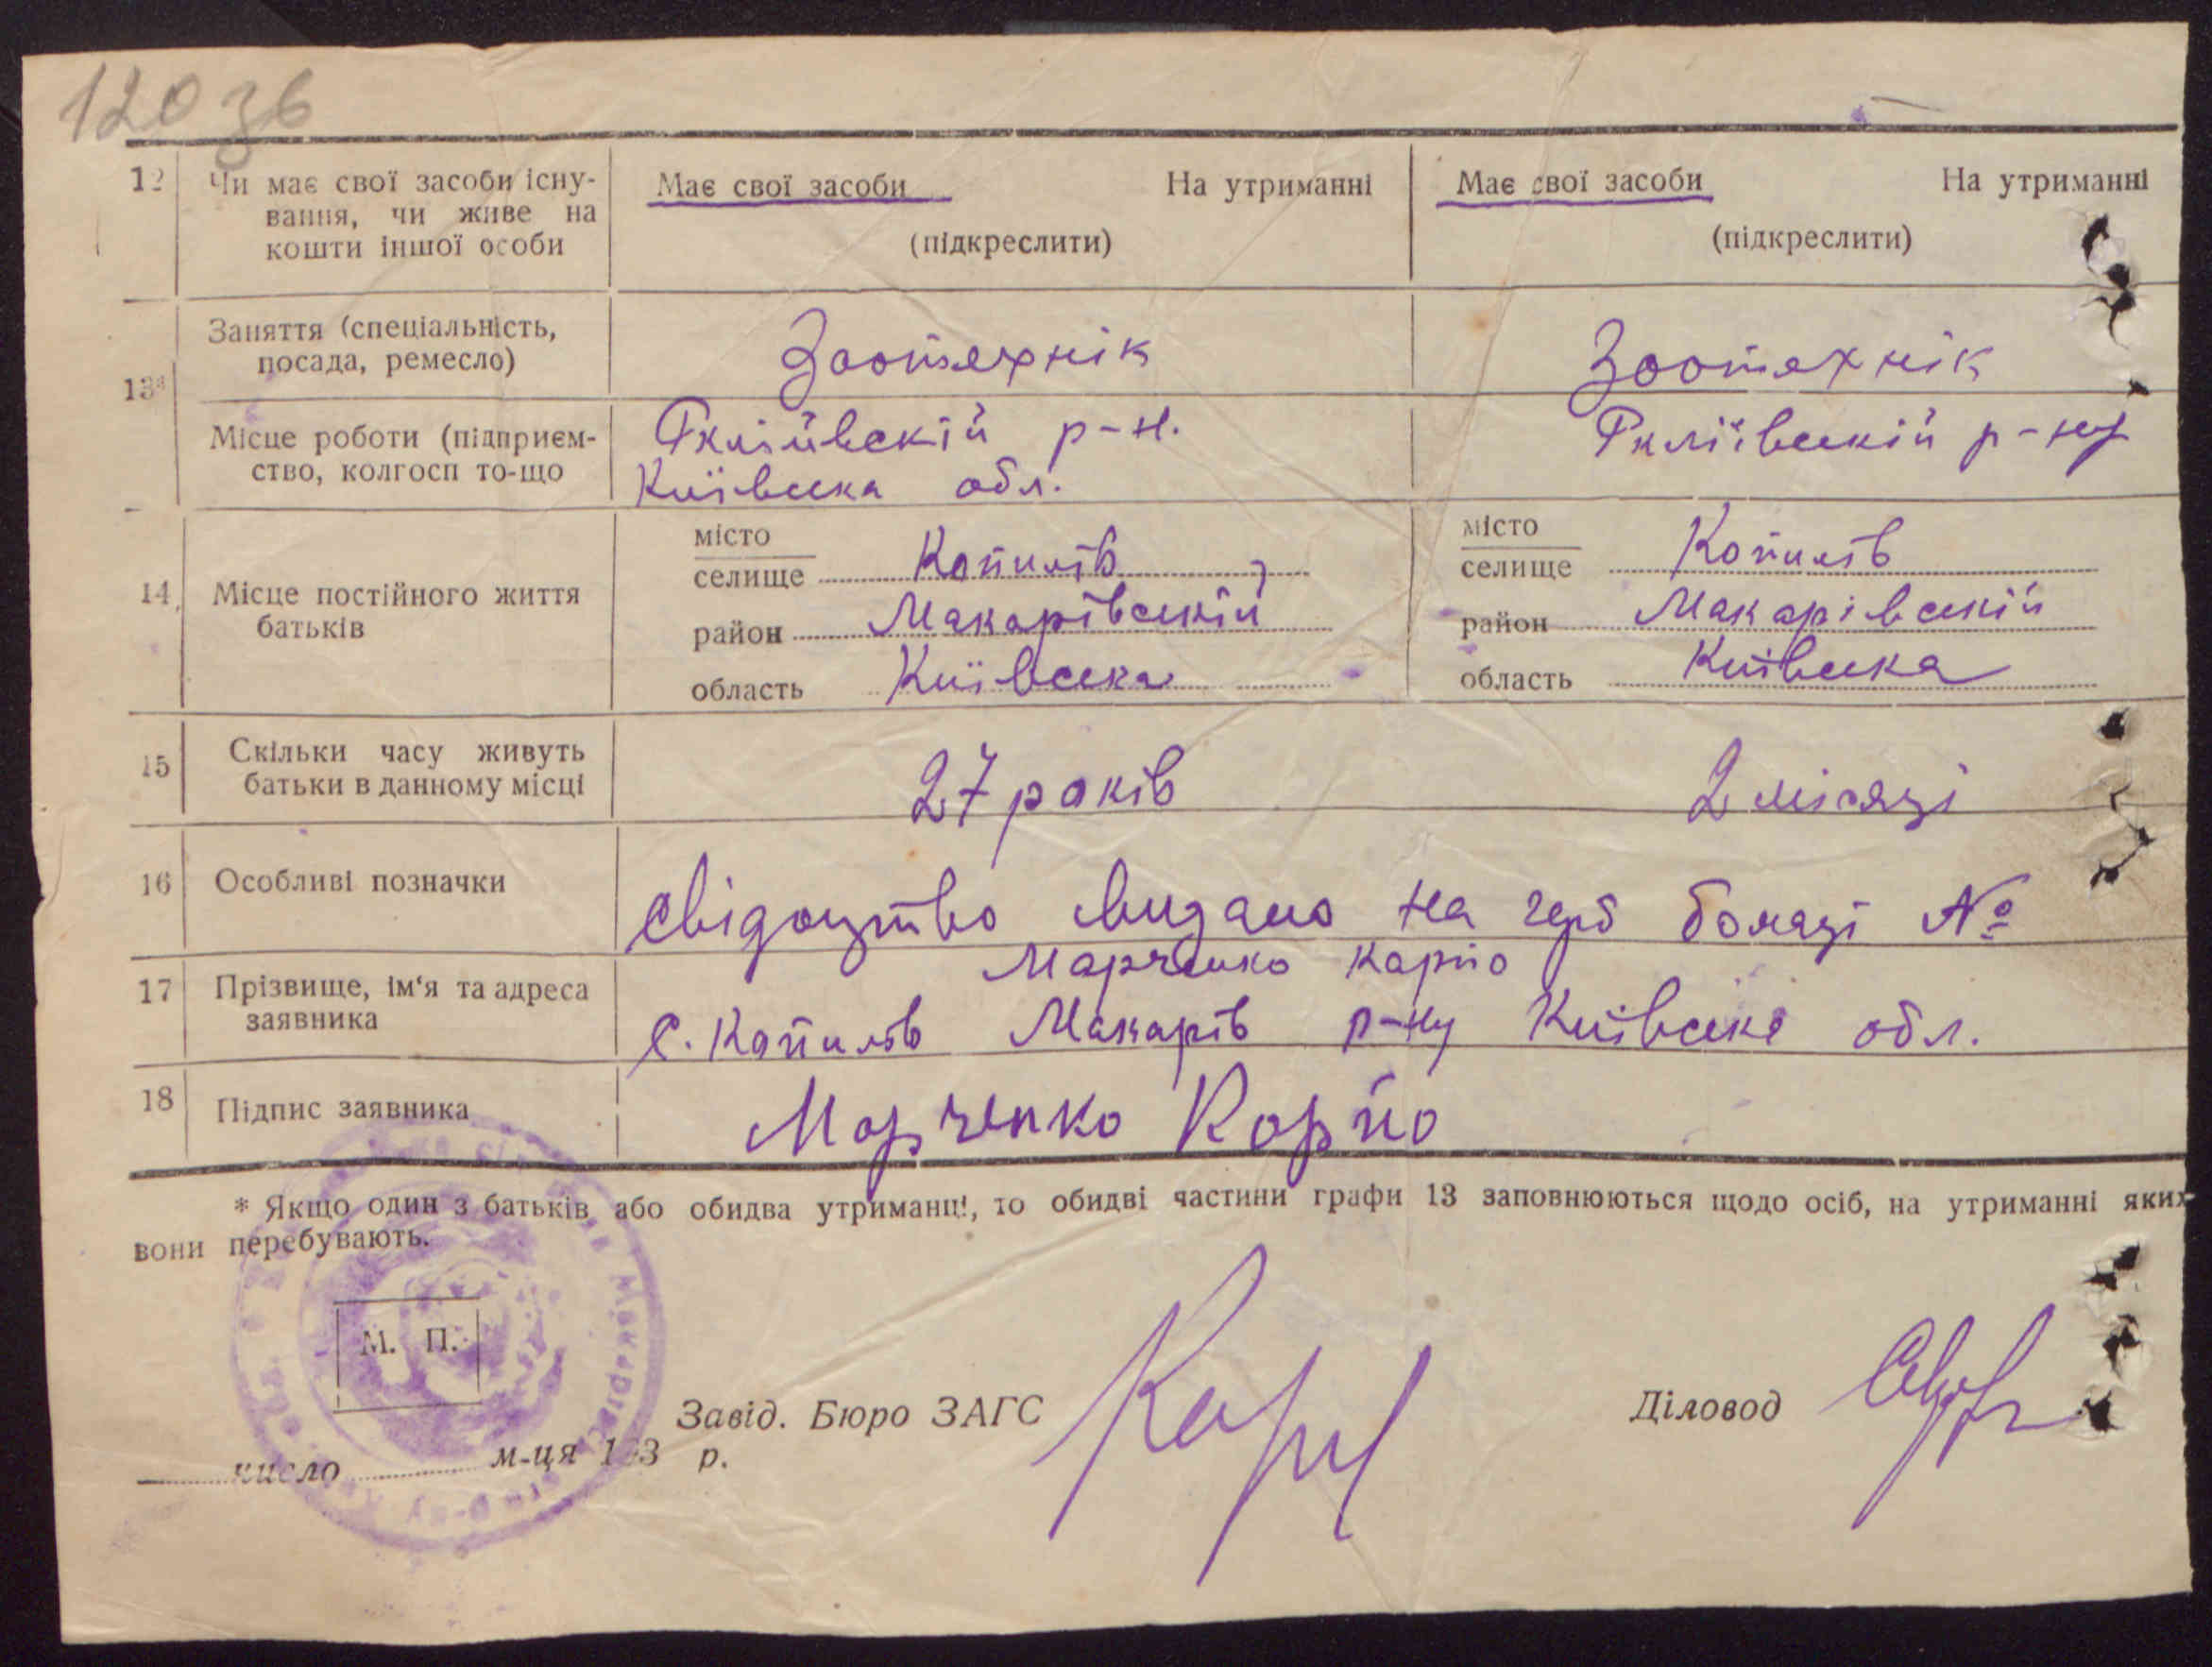 120 зв
12 Чи має свої засоби існу-
вання, чи живе на
кошти іншої особи
Має свої засоби На утриманні
(підкреслити)
Має свої засоби На утриманні
(підкреслити)
13* Заняття (спеціальність,
посада, ремесло)
Зоотехнік
Зоотехнік
Місце роботи (підприєм-
ство, колгосп то-що
р-н.
Київська обл.
р-ну
14 Місце постійного життя
батьків
місто
селище Копилів
район Макарівскій
область Київська
місто
селище Копилів
район Макарівскій
область Київська
15 Скільки часу живуть
батьки в данному місці
27 років
2 місяці
16 Особливі позначки
свідоцтво видано на герб бомазі №
17 Прізвище, ім'я та адреса
заявника
Марченко Карпо
с. Копилів Макарів р-ну Київскі обл.
18 Підпис заявника
Марченко Корпо
* Якщо один з батьків або обидва утриманці, то обидві частини графи 13 заповнюються щодо осіб, на утриманні яких
вони перебувають.
М. П.
Завід. Бюро ЗАГС
Діловод
число м-ця 193 р.